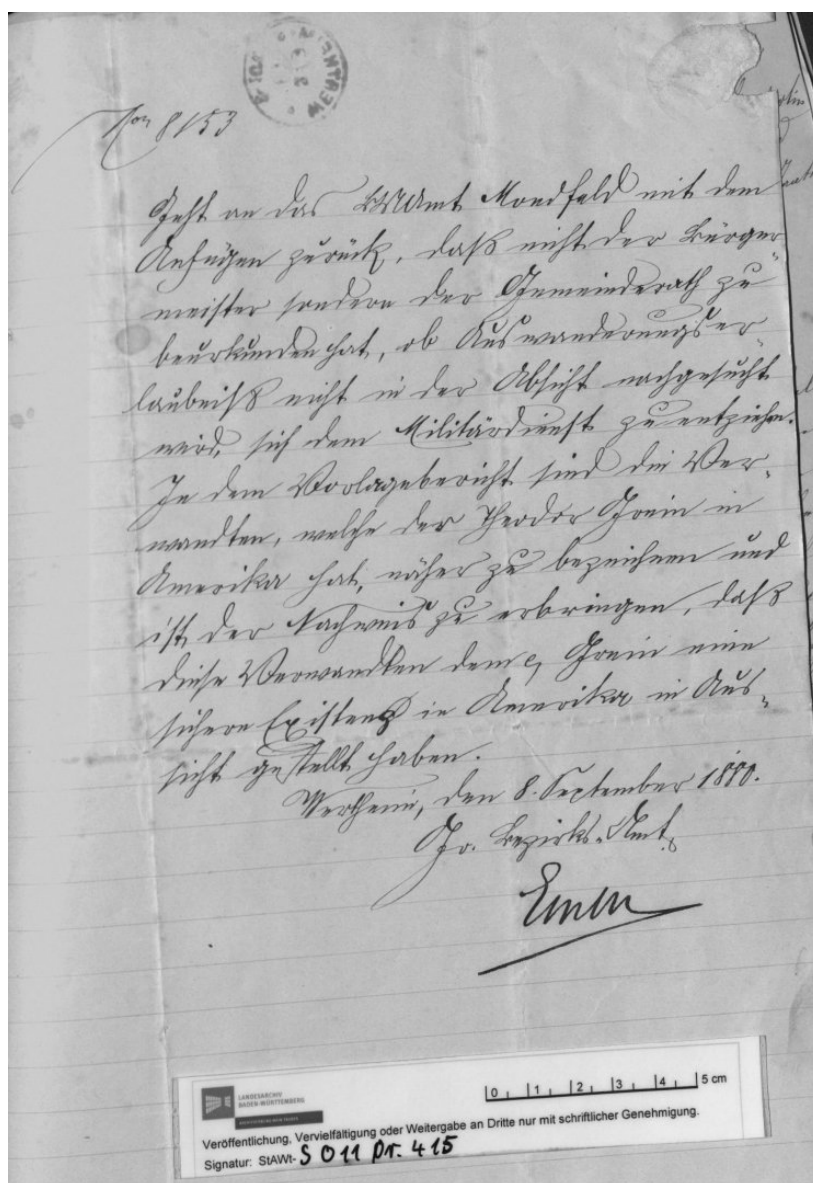 WERTHEIM
Nro 8153
Geht an das BMAmt Mondfeld mit dem
Anfügen zurück, daß nicht der Bürger-
meister sondern der Gemeinderath zu
beurkunden hat, ob Auswanderungser-
laubniß nicht in der Absicht nachgesucht
wird, sich dem Militärdienst zu entziehen.
In dem Vorlagebericht sind die Ver-
wandten, welche der Theodor Grein in
Amerika hat, näher zu bezeichnen und
ist der Nachweis zu erbringen, daß
diese Verwandten dem Grein eine
sichere Existenz in Amerika in Aus-
sicht gestellt haben.
Wertheim, den 8. September 1880.
Gr. Bezirks-Amt
LANDESARCHIV
BADEN-WÜRTTEMBERG
0 1 2 3 4 5 cm
Veröffentlichung, Vervielfältigung oder Weitergabe an Dritte nur mit schriftlicher Genehmigung.
Signatur: StAWt- S O11 Nr. 415